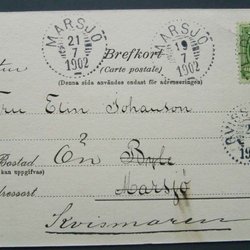 MARSJÖ
21
7
1902
MARSJÖ
19
7
1902
Brefkort
(Carte postale)
(Denna sida användes endast för adresseringen)
Fru Elin Johanson
Ön Byle
Bostad
(om kan uppgifvas)
Marsjö
Adressort
Kvismaren